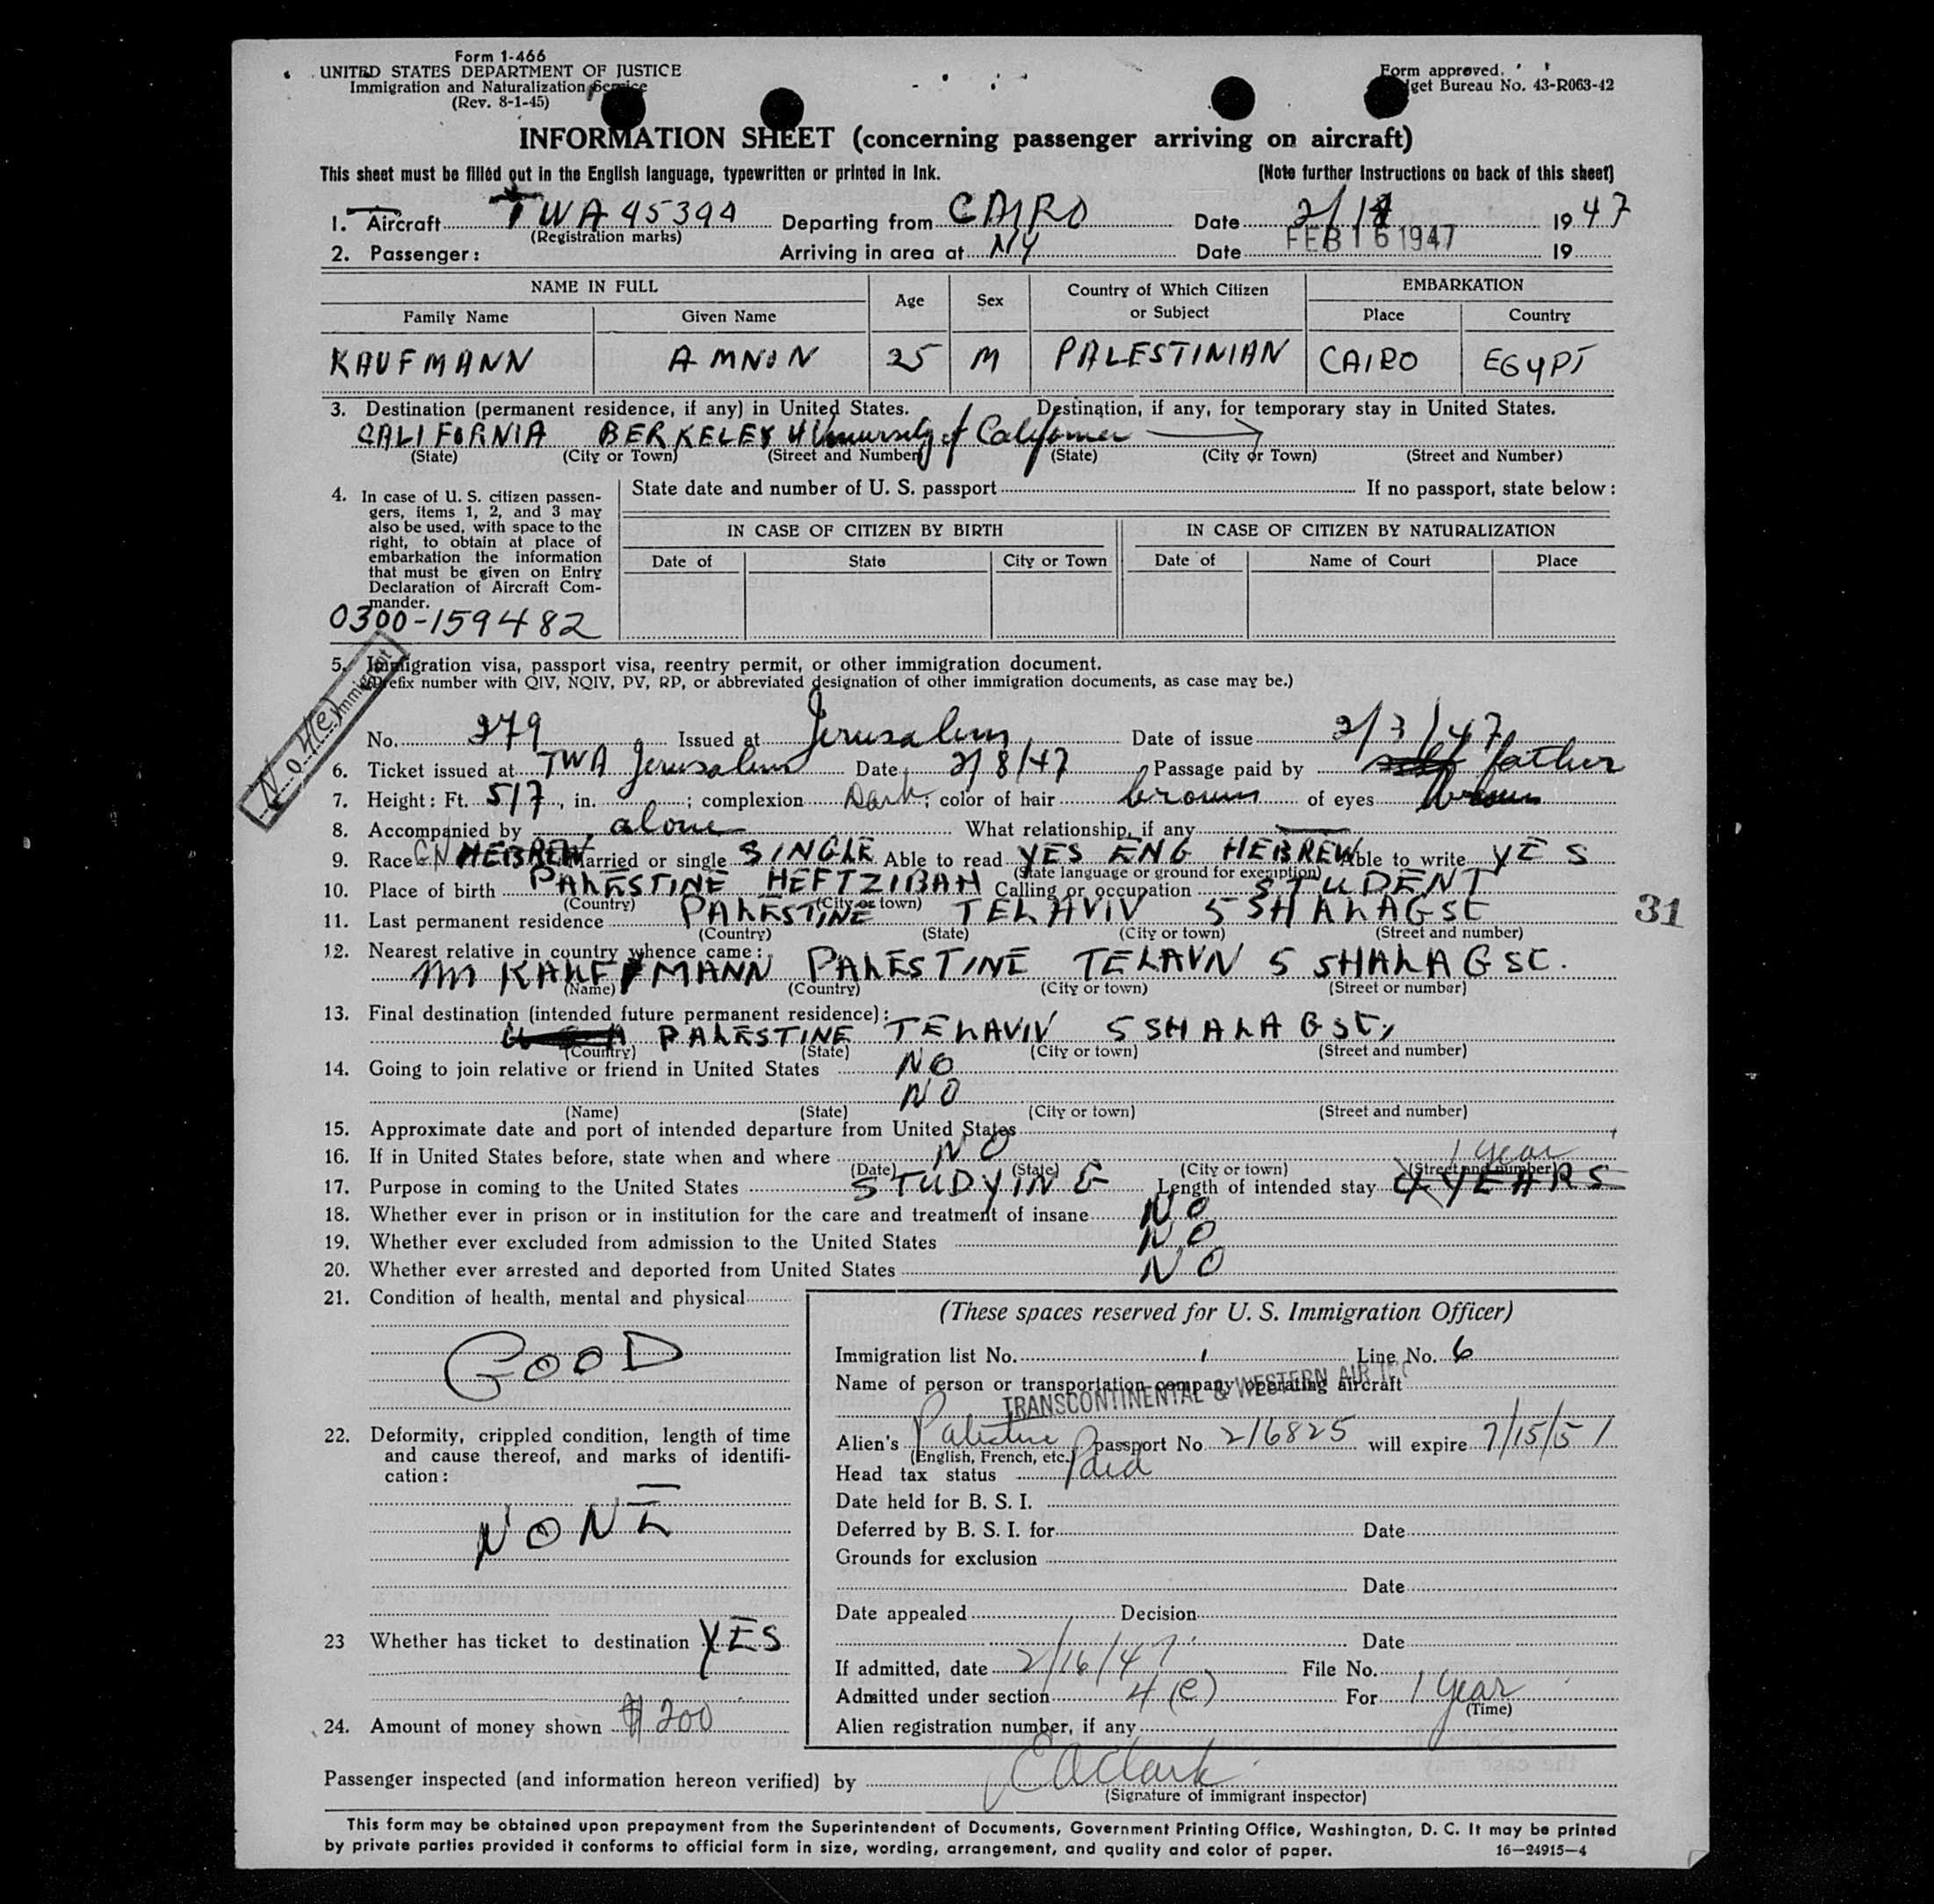 Form 1-466
UNITED STATES DEPARTMENT OF JUSTICE
Immigration and Naturalization Service
(Rev. 8-1-45)
Form approved.
get Bureau No. 43-R063-42
INFORMATION SHEET (concerning passenger arriving on aircraft)
This sheet must be filled out in the English language, typewritten or printed in ink. (Note further Instructions on back of this sheet)
1. Aircraft TWA 45394 Departing from CAIRO Date 2/14 1947
(Registration marks)
2. Passenger: Arriving in area at NY Date FEB 16 1947 19
NAME IN FULL Age Sex Country of Which Citizen or Subject EMBARKATION
Family Name Given Name Place Country
KAUFMANN AMNON 25 M PALESTINIAN CAIRO EGYPT
3. Destination (permanent residence, if any) in United States. Destination, if any, for temporary stay in United States.
CALIFORNIA BERKELEY University of California
(State) (City or Town) (Street and Number) (State) (City or Town) (Street and Number)
4. In case of U. S. citizen passen-
gers, items 1, 2, and 3 may
also be used, with space to the
right, to obtain at place of
embarkation the information
that must be given on Entry
Declaration of Aircraft Com-
mander.
0300-159482
State date and number of U. S. passport If no passport, state below:
IN CASE OF CITIZEN BY BIRTH IN CASE OF CITIZEN BY NATURALIZATION
Date of State City or Town Date of Name of Court Place
5. Immigration visa, passport visa, reentry permit, or other immigration document.
(Prefix number with QIV, NQIV, PV, RP, or abbreviated designation of other immigration documents, as case may be.)
4(e) Immigrant
No. 279 Issued at Jerusalem Date of issue 2/3/47
6. Ticket issued at TWA Jerusalem Date 2/8/47 Passage paid by self father
7. Height: Ft. 5/7, in. ; complexion Dark; color of hair brown of eyes brown
8. Accompanied by alone What relationship, if any
9. Race HEBREW Married or single SINGLE Able to read YES ENG HEBREW Able to write YES
(State language or ground for exemption)
10. Place of birth PALESTINE HEFTZIBAH Calling or occupation STUDENT
(Country) (City or town)
11. Last permanent residence PALESTINE TELAVIV 5 SHALAG ST
(Country) (State) (City or town) (Street and number)
31
12. Nearest relative in country whence came:
KAUFMANN PALESTINE TELAVIV 5 SHALAG ST.
(Name) (Country) (City or town) (Street or number)
13. Final destination (intended future permanent residence):
PALESTINE TELAVIV 5 SHALAG ST,
(Country) (State) (City or town) (Street and number)
14. Going to join relative or friend in United States NO
NO
(Name) (State) (City or town) (Street and number)
15. Approximate date and port of intended departure from United States
16. If in United States before, state when and where NO 1 year
(Date) (State) (City or town) (Street and number)
17. Purpose in coming to the United States STUDYING Length of intended stay 4 YEARS
18. Whether ever in prison or in institution for the care and treatment of insane NO
19. Whether ever excluded from admission to the United States NO
20. Whether ever arrested and deported from United States NO
21. Condition of health, mental and physical
GOOD
22. Deformity, crippled condition, length of time
and cause thereof, and marks of identifi-
cation:
NONE
23 Whether has ticket to destination YES
24. Amount of money shown $200
(These spaces reserved for U. S. Immigration Officer)
Immigration list No. 1 Line No. 6
Name of person or transportation company operating aircraft
TRANSCONTINENTAL & WESTERN AIR INC
Alien's Palestine passport No. 216825 will expire 7/15/51
(English, French, etc.)
Head tax status Paid
Date held for B. S. I.
Deferred by B. S. I. for Date
Grounds for exclusion
Date
Date appealed Decision
Date
If admitted, date 2/16/47 File No.
Admitted under section 4(e) For 1 year
(Time)
Alien registration number, if any
Passenger inspected (and information hereon verified) by E A Clark
(Signature of immigrant inspector)
This form may be obtained upon prepayment from the Superintendent of Documents, Government Printing Office, Washington, D. C. It may be printed
by private parties provided it conforms to official form in size, wording, arrangement, and quality and color of paper. 16—24915-4